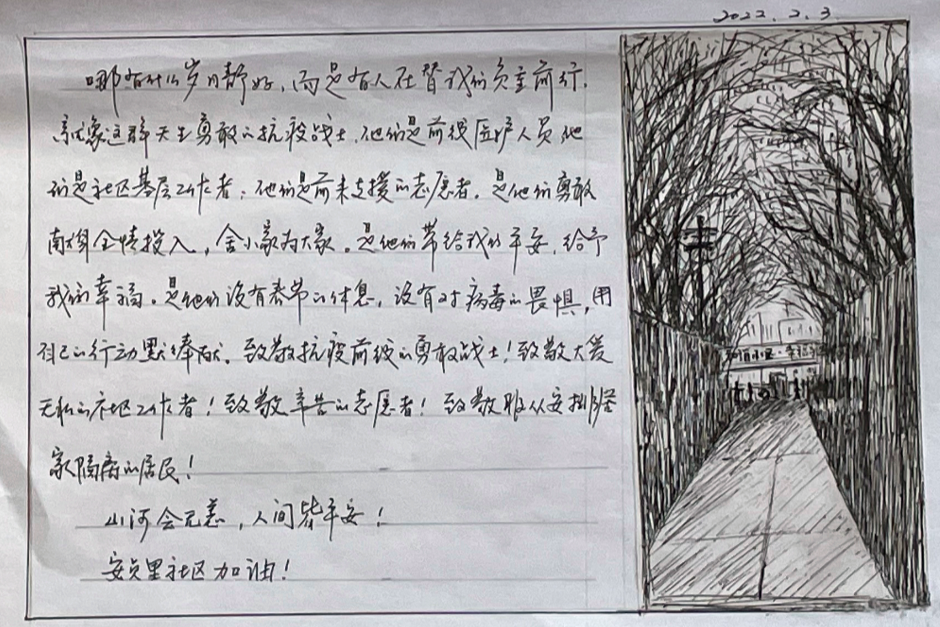 2022.2.3
哪有什么岁月静好，而是有人在替我们负重前行.
就像这群天生勇敢的抗疫战士，他们是前线医护人员他
们是社区基层工作者；他们是前来支援的志愿者。是他们勇敢
献身全情投入，舍小家为大家。是他们带给我们平安，给予
我们幸福。是他们没有春节的休息，没有对病毒的畏惧，用
自己的行动默默奉献。致敬抗疫前线的勇敢战士！致敬大爱
无私的社区工作者！致敬辛苦的志愿者！致敬服从安排居
家隔离的居民！
山河会无恙，人间皆平安！
安贞里社区加油！